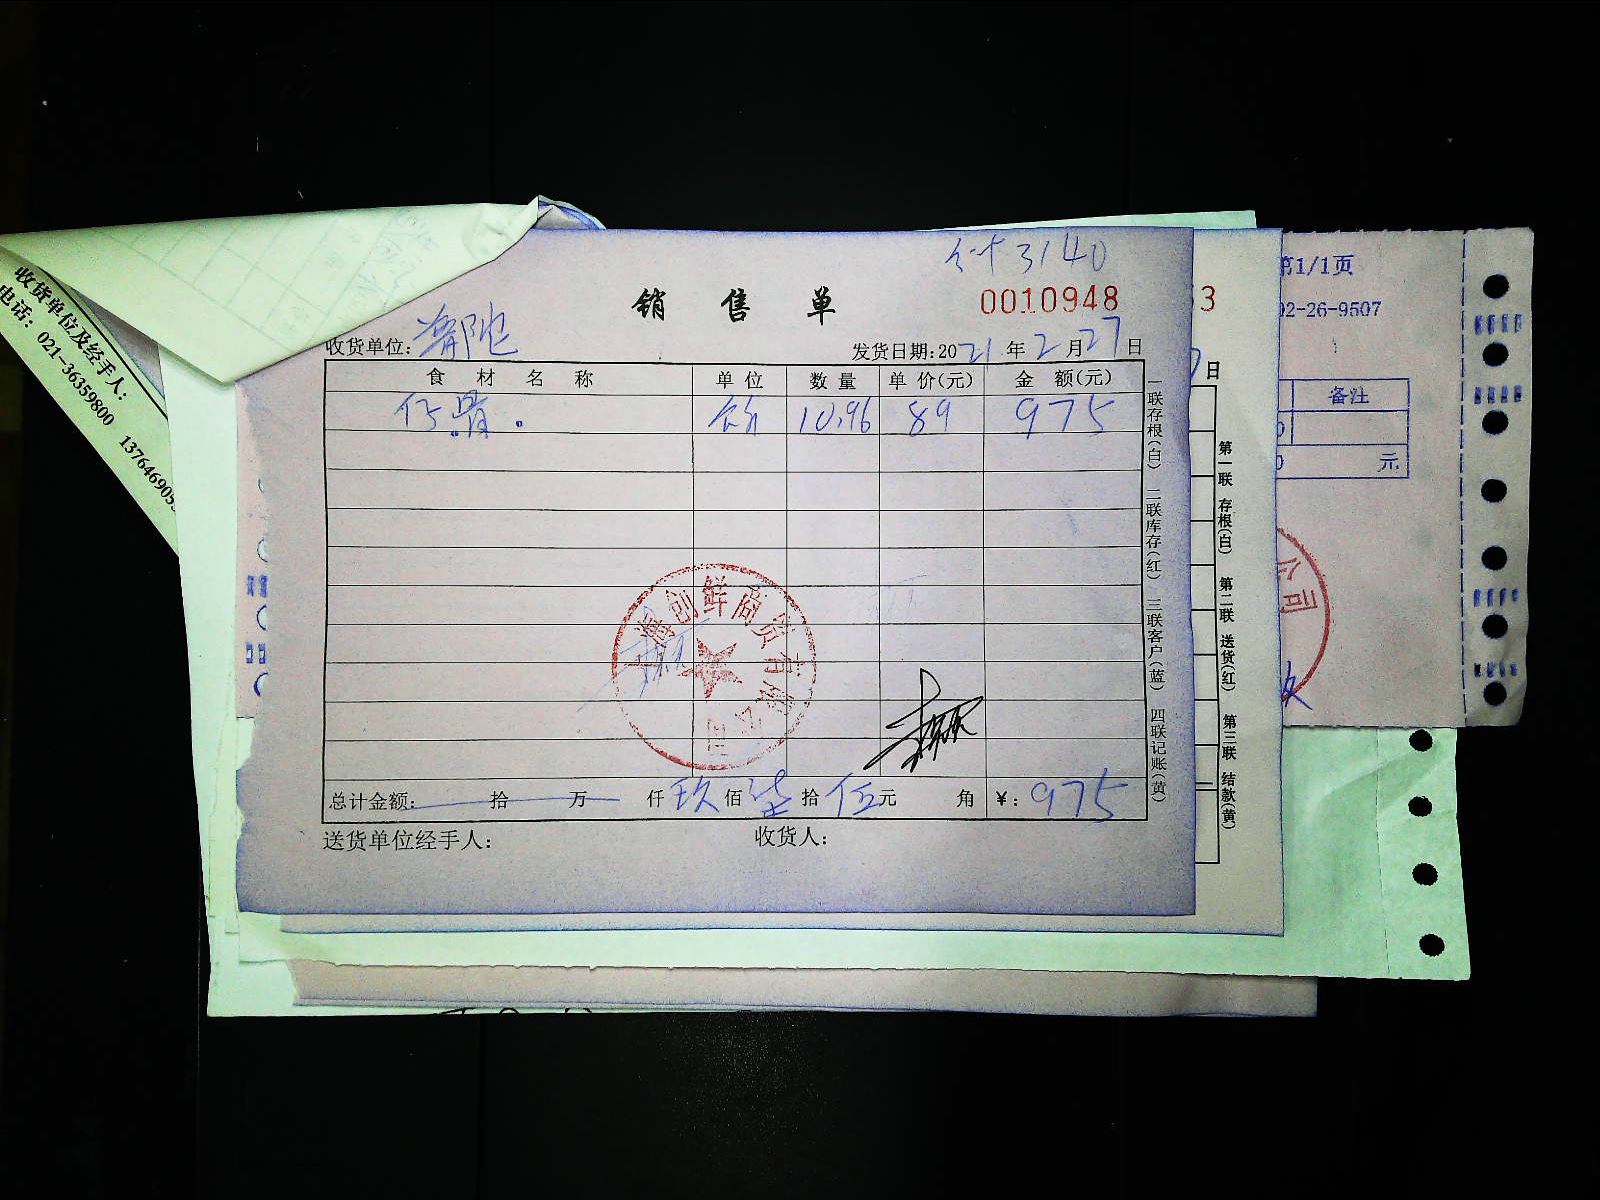 合计3140
销售单
0010948
收货单位:
发货日期:2021年2月27日
食材名称 单位 数量 单价(元) 金额(元)
仔骨. 10.96 89 975
一联存根(白) 二联库存(红) 三联客户(蓝) 四联记账(黄)
创鲜商贸有限公司
总计金额: 拾 万 仟玖佰柒拾伍元 角 ¥:975
送货单位经手人:
收货人:
收货单位及经手人:
电话:021-36359800 137646905
3
日
第一联 存根(白) 第二联 送货(红) 第三联 结款(黄)
第1/1页
02-26-9507
备注
0
0 元
公司